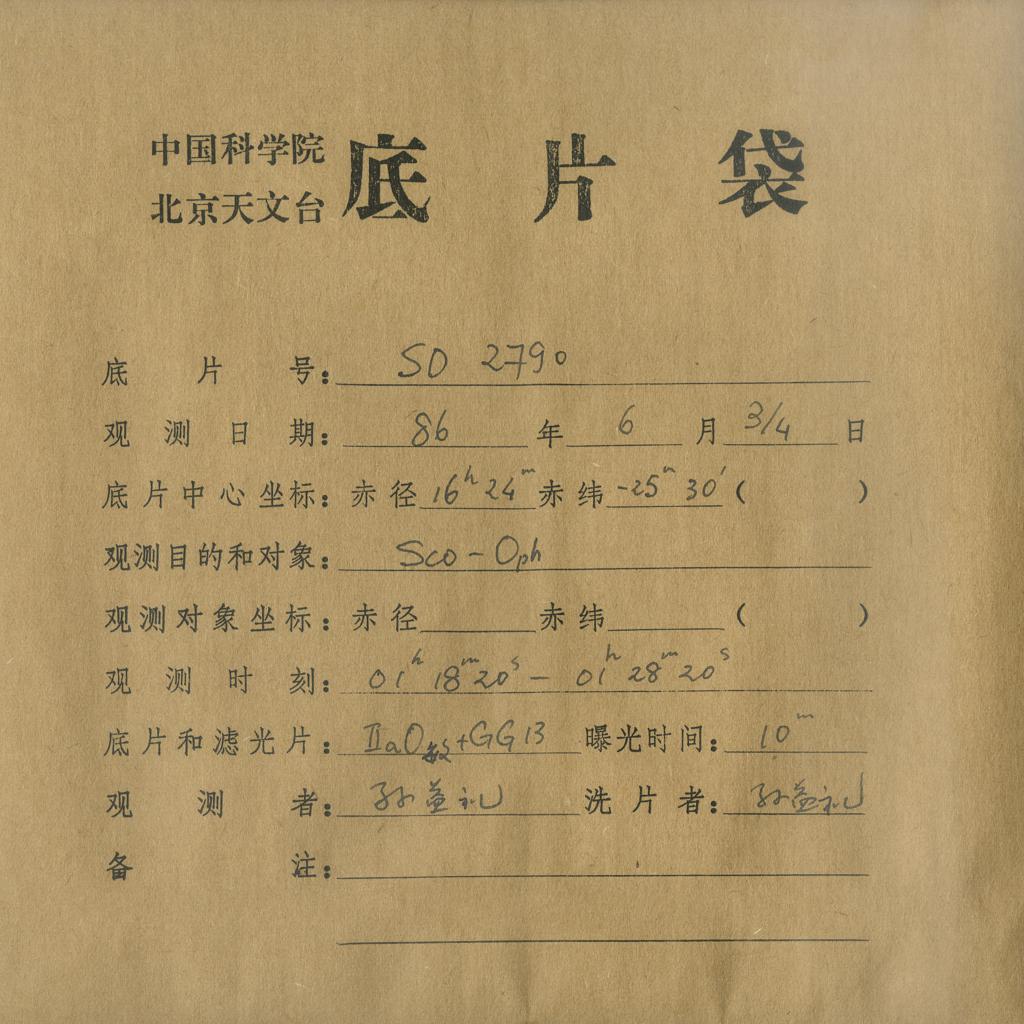 中国科学院
北京天文台
底片袋
底片号: SO 2790
观测日期: 86 年 6 月 3/4 日
底片中心坐标: 赤径 16ʰ 24ᵐ 赤纬 -25ᵐ 30′ ( )
观测目的和对象: Sco-Oph
观测对象坐标: 赤径 赤纬 ( )
观测时刻: 01ʰ 18ᵐ 20ˢ - 01ʰ 28ᵐ 20ˢ
底片和滤光片: IIaO敏+GG13 曝光时间: 10ᵐ
观测者: 孙益礼 洗片者: 孙益礼
备注: